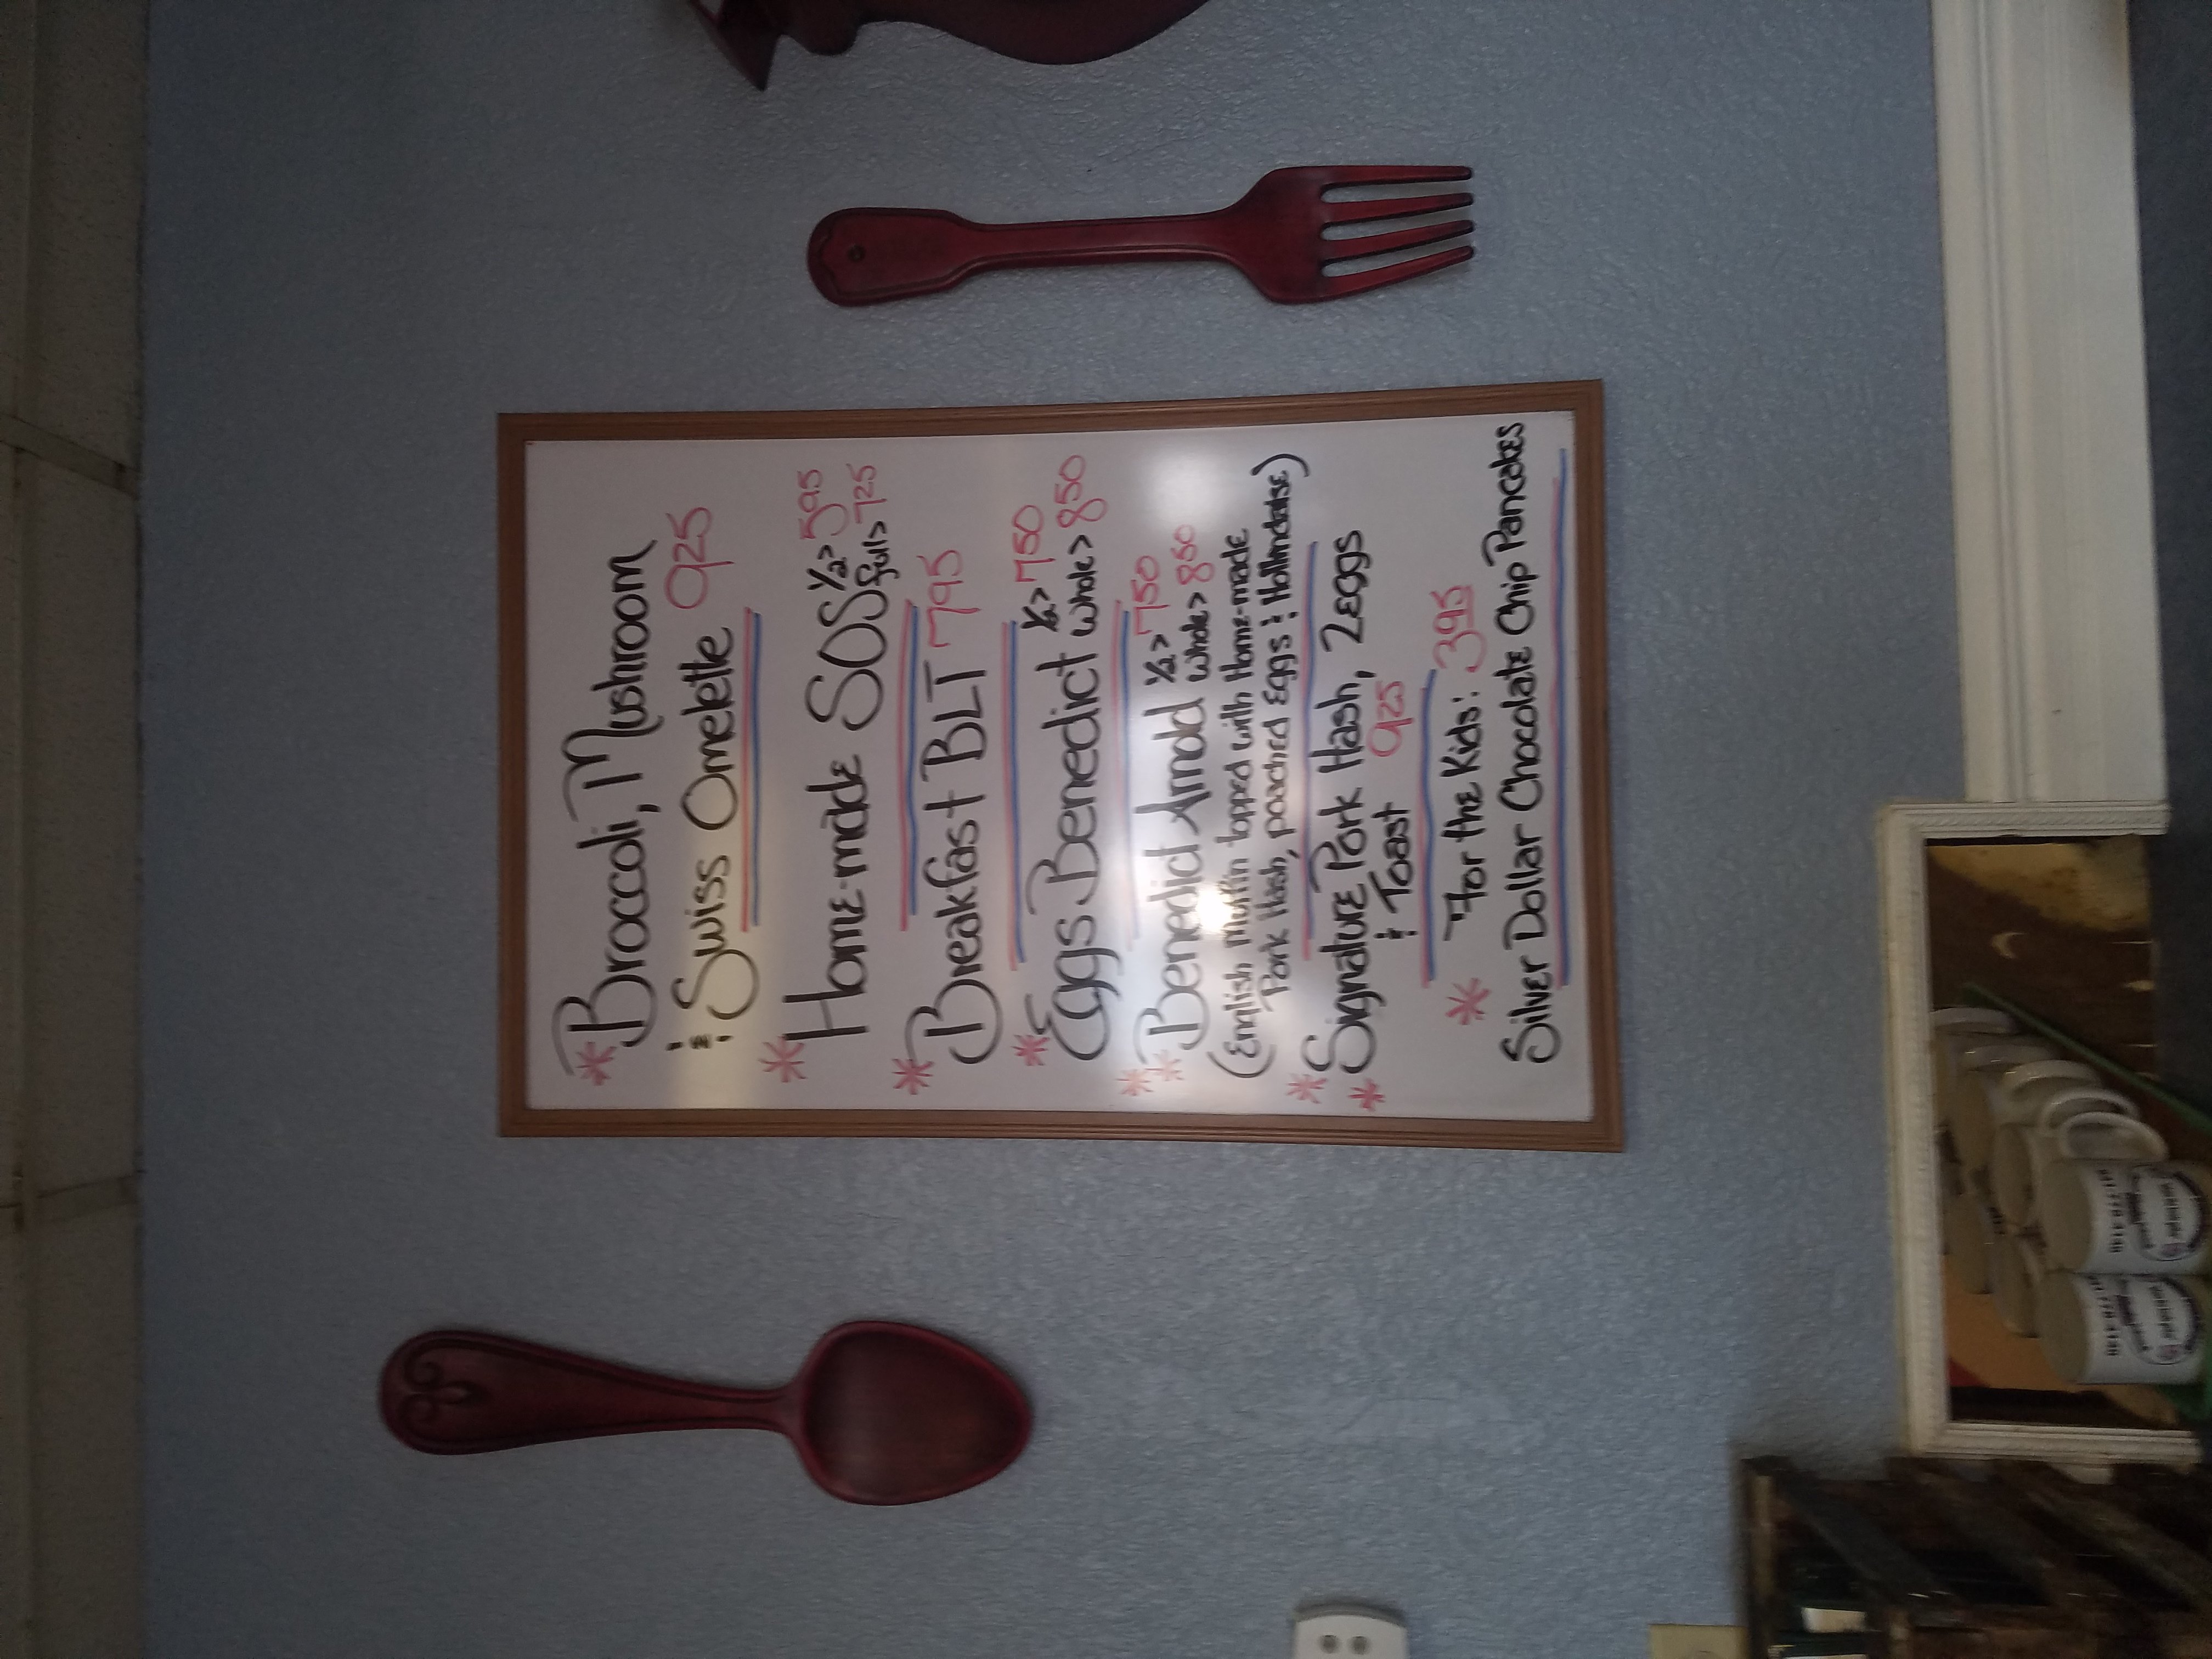 * Broccoli, Mushroom
& Swiss Omelette 925
* Home-made SOS ½> 595
full> 725
* Breakfast BLT 795
* Eggs Benedict ½> 750
whole> 850
* Benedict Arnold ½> 750
whole> 850
(English Muffin topped with Home-made
Pork Hash, poached Eggs & Hollindaise)
* Signature Pork Hash, 2 Eggs
* & Toast 925
* "For the Kids: 395
Silver Dollar Chocolate Chip Pancakes